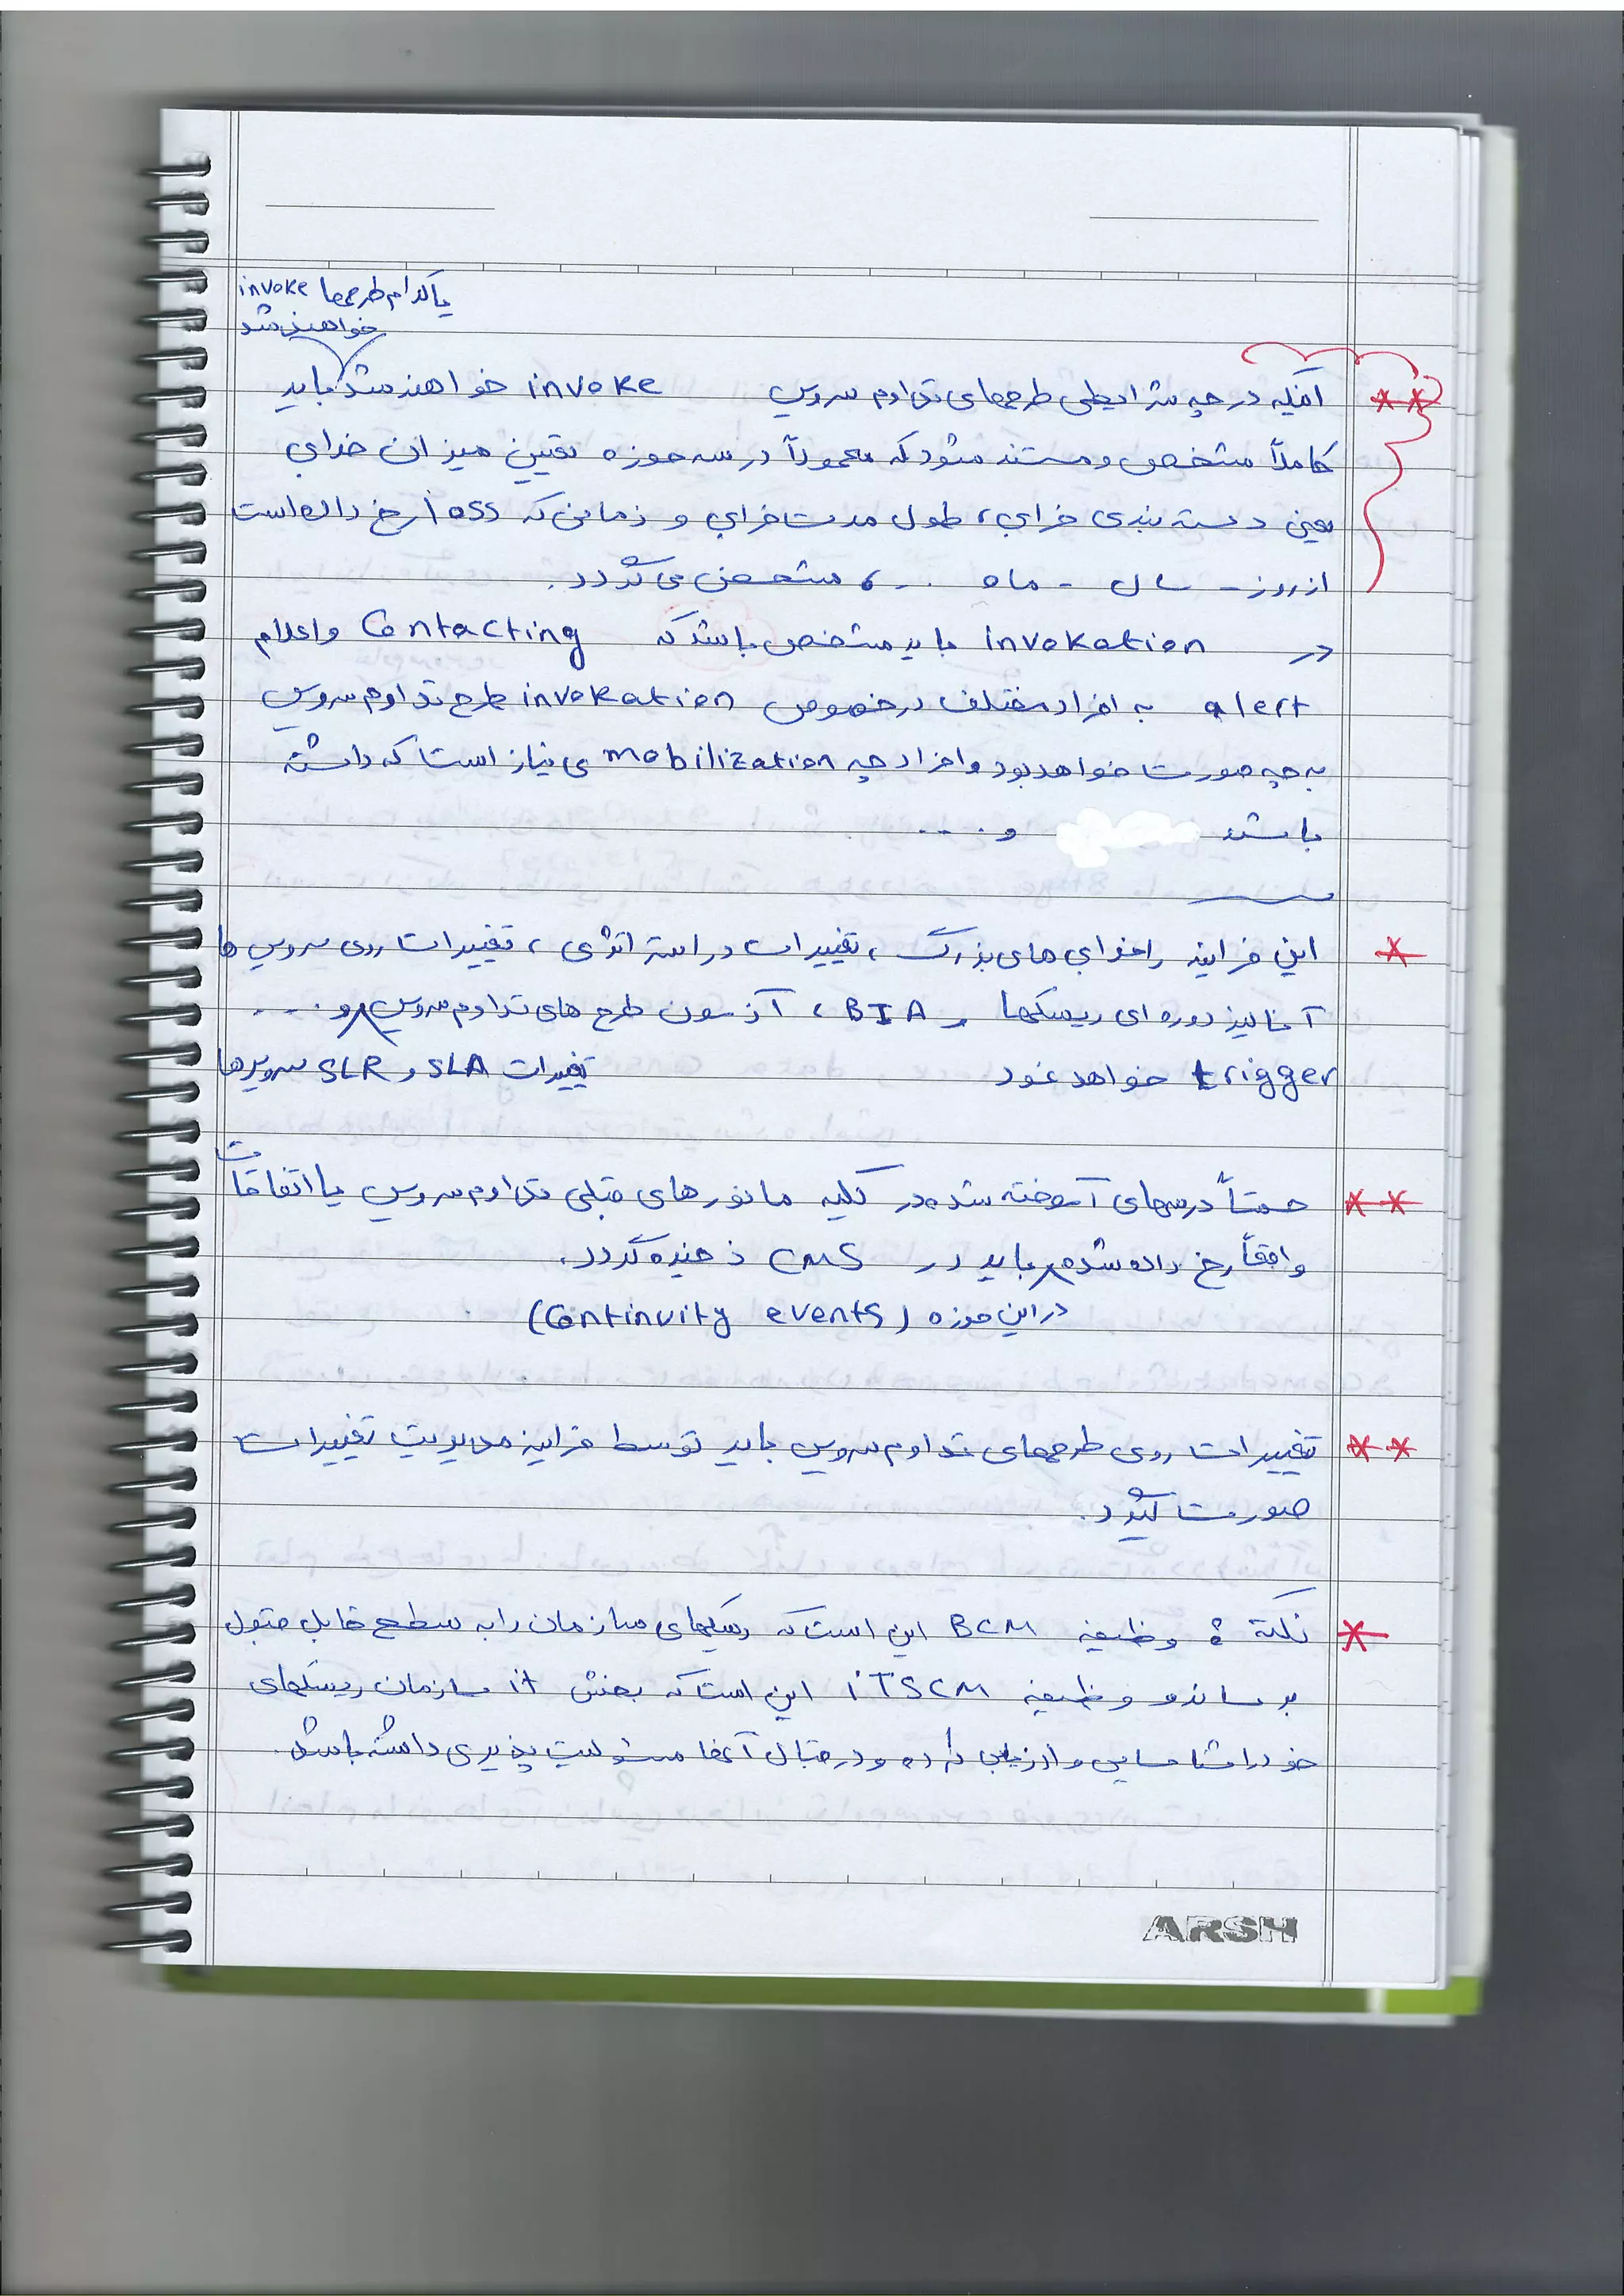 یا کدام طرحها invoke
خواهند شد
** اینکه در چه شرایطی طرحهای تداوم سرویس invoke خواهند شد باید
کاملاً مشخص و مستند شود که معمولاً در سه حوزه تعیین میزان خرابی
یعنی دسته بندی خرابی، طول مدت خرابی و زمانی که loss رخ داده است
از روز - سال - ماه ... ، مشخص می گردد.
در invokation باید مشخص باشد که Contacting و اعلام
alert به افراد مختلف در خصوص invokation طرح تداوم سرویس
به چه صورت خواهد بود و افراد چه mobilization ی نیاز است که داشته
باشند و ....
* این فرایند را خرابی های بزرگ، تغییرات در استراتژی، تغییرات روی سرویس ها
آنالیز دوره ای ریسکها و BIA، آزمون طرح های تداوم سرویس و ....
trigger خواهد نمود تغییرات SLA و SLR سرویسها
** حتماً درسهای آموخته شده در کلیه مانورهای قبلی تداوم سرویس یا اتفاقات
واقعاً رخ داده شده باید در CMS ذخیره گردد.
در این حوزه (Continuity events)
** تغییرات روی طرحهای تداوم سرویس باید توسط فرایند مدیریت تغییرات
صورت گیرد.
* نکته : وظیفه BCM این است که ریسکهای سازمان را به سطح قابل قبول
برساند و وظیفه ITSCM این است که بخش it سازمان ریسکهای
خود را شناسایی و ارزیابی کرده و در قبال آنها مسئولیت پذیری داشته باشد.
ARSH